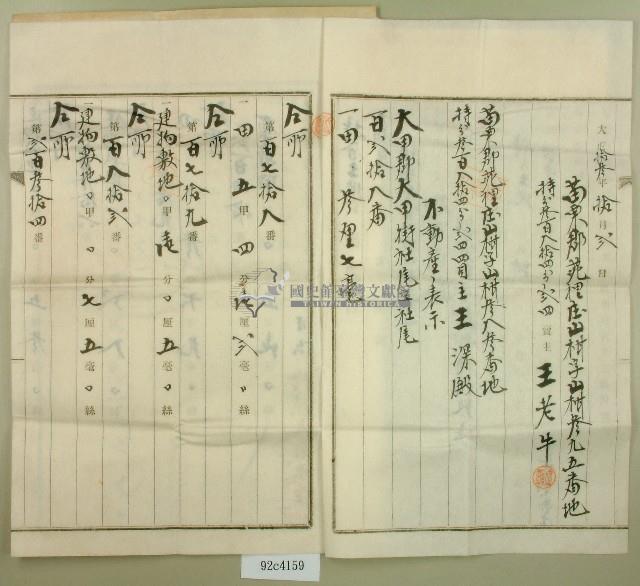 大正拾參年拾月弐日
苗栗郡苑裡庄山柑子山柑參九五番地
持分參百八拾四分ノ弐四 賣主 王老牛
苗栗郡苑裡庄山柑子山柑參八參番地
持分參百八拾四分ノ弐四 買主 王深殿
不動產ノ表示
大甲郡大甲街社尾字社尾
百弐拾八番
一田 參厘七毫
仝所
第百七拾八番
一田五甲四分 厘弐毫〇絲
仝所
第百七拾九番
一建物敷地〇甲壹分〇厘五毫〇絲
仝所
第百八拾弐番
一建物敷地〇甲〇分七厘五毫〇絲
仝所
第弐百參拾四番
國史館臺灣文獻館
TAIWAN HISTORICA
92c4159